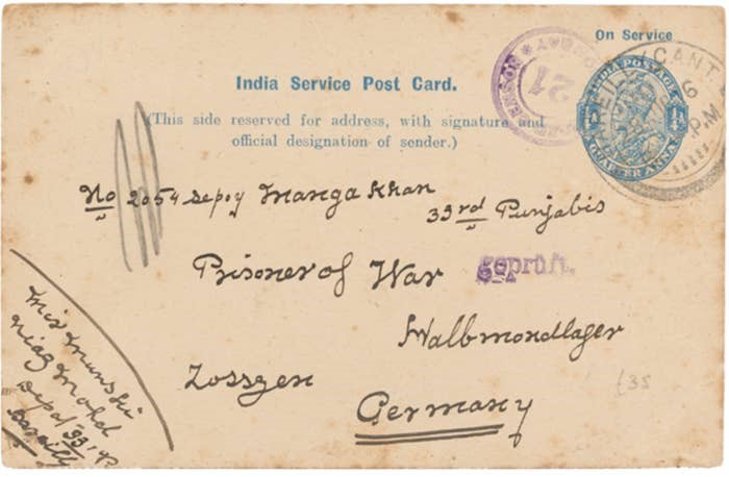 On Service
India Service Post Card.
(This side reserved for address, with signature and
official designation of sender.)
INDIA POSTAGE
QUARTER ANNA
21
No 2054 Sepoy Manga Khan
33rd Punjabis
Prisoner of War
Geprüft.
Halbmondlager
Zosszen
Germany
Mir Munshi
Niaz Mohd
Depot 33rd
Bareilly
£35